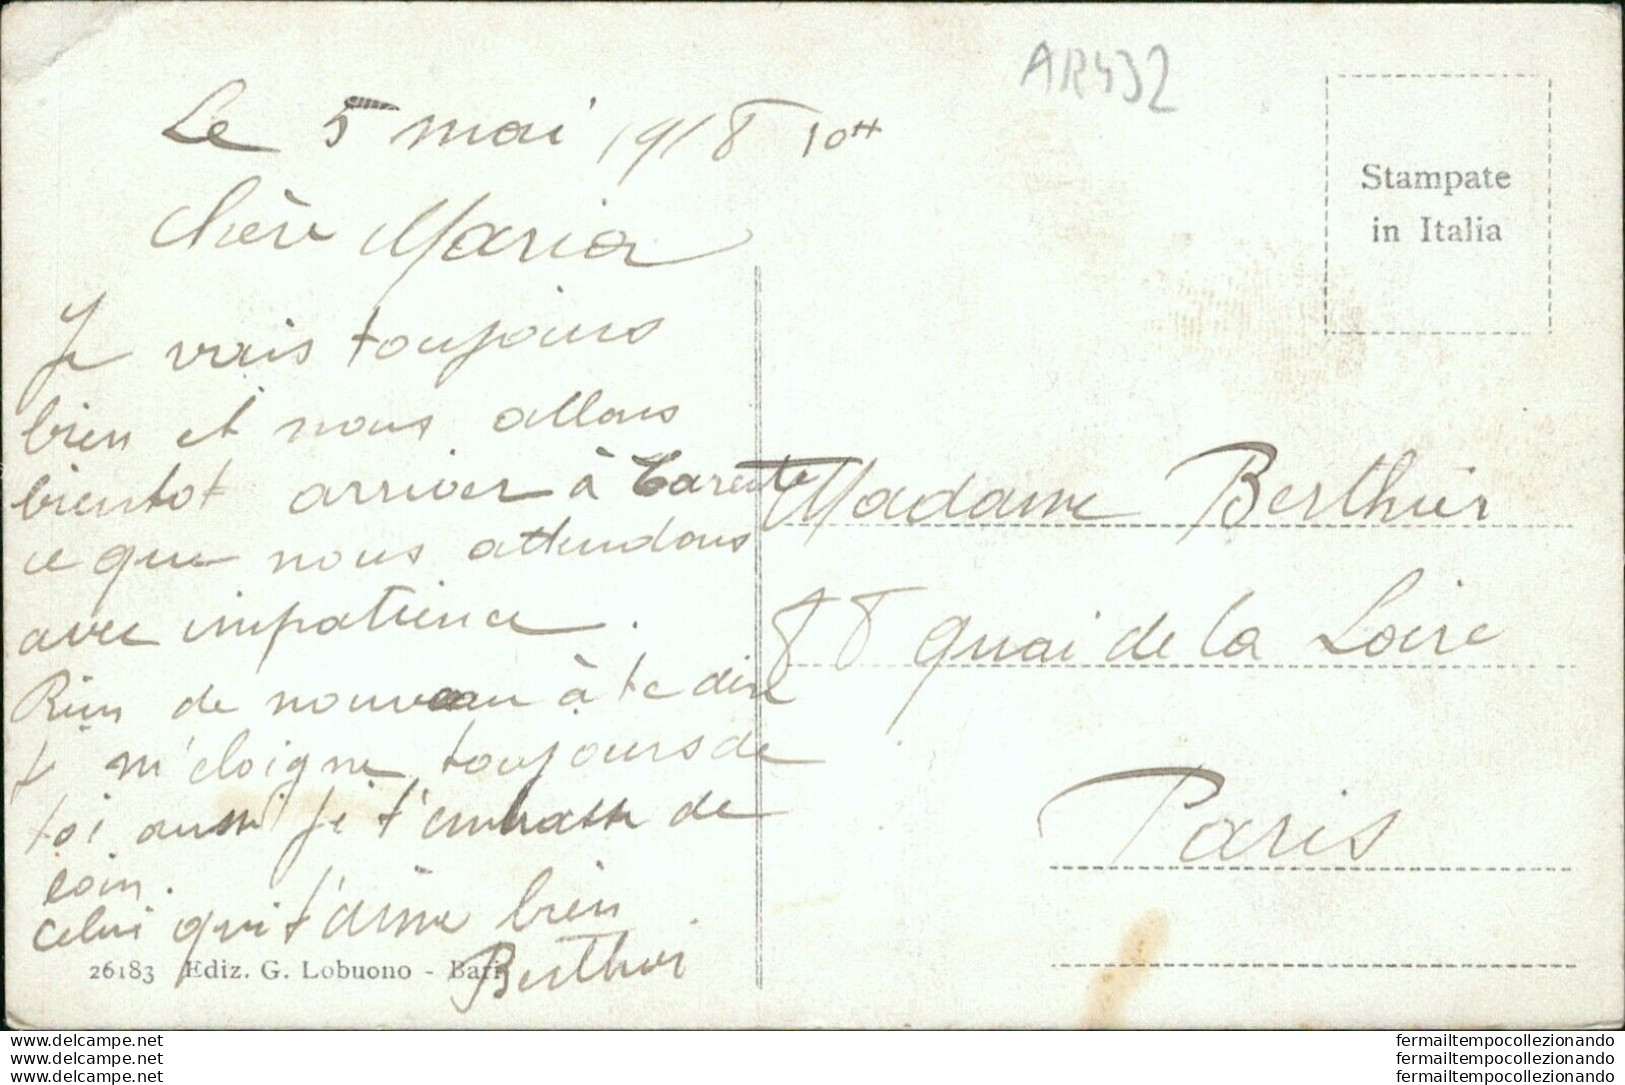 AR432
Le 5 mai 1918 10H
Chère Maria
Je vais toujours
bien et nous allons
bientot arriver à Tarente
ce que nous attendons
avec impatience.
Rien de nouveau à te dire
Je m'éloigne toujours de
toi aussi je t'embrasse de
loin.
Celui qui t'aime bien
Berthier
Stampate
in Italia
Madame Berthier
88 quai de la Loire
Paris
26183 Ediz. G. Lobuono - Bari
www.delcampe.net
www.delcampe.net
www.delcampe.net
fermailtempocollezionando
fermailtempocollezionando
fermailtempocollezionando